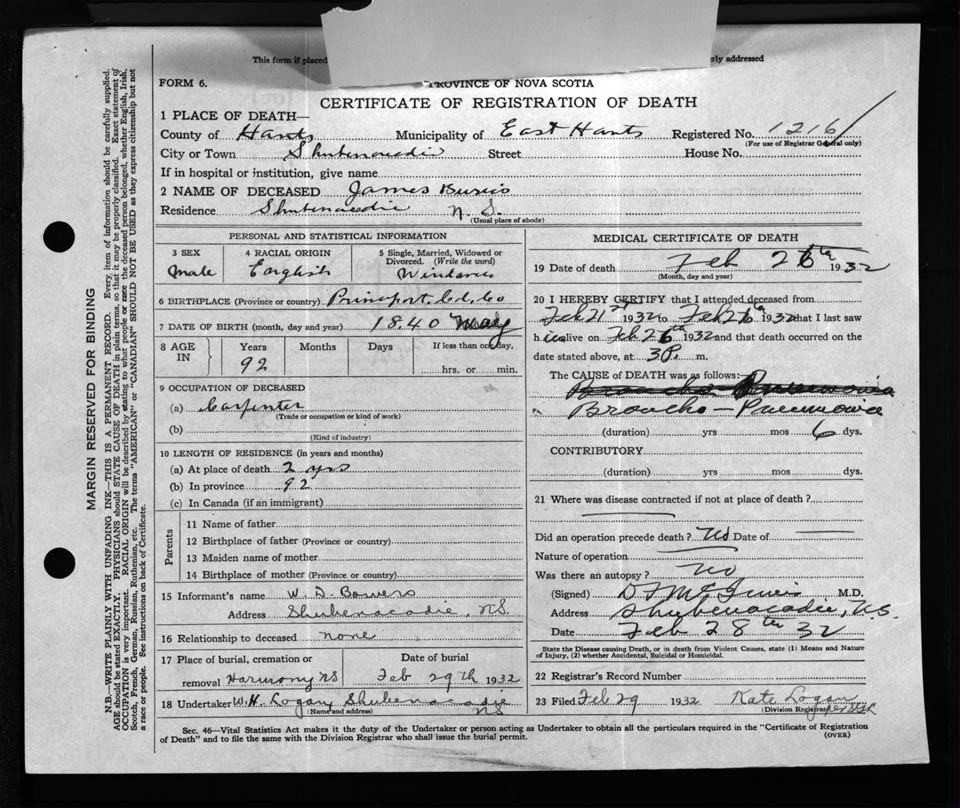 This form if placed
rly addressed
FORM 6.
PROVINCE OF NOVA SCOTIA
CERTIFICATE OF REGISTRATION OF DEATH
1 PLACE OF DEATH—
County of Hants Municipality of East Hants Registered No. 1216
(For use of Registrar General only)
City or Town Shubenacadie Street House No.
If in hospital or institution, give name
2 NAME OF DECEASED James
Residence Shubenacadie N. S.
(Usual place of abode)
PERSONAL AND STATISTICAL INFORMATION
3 SEX 4 RACIAL ORIGIN 5 Single, Married, Widowed or Divorced. (Write the word)
Male English
6 BIRTHPLACE (Province or country)
7 DATE OF BIRTH (month, day and year) 1840 May
8 AGE IN Years Months Days If less than one day,
92 hrs. or min.
9 OCCUPATION OF DECEASED
(a) Carpenter
(Trade or occupation or kind of work)
(b)
(Kind of industry)
10 LENGTH OF RESIDENCE (in years and months)
(a) At place of death 2 yrs
(b) In province 92
(c) In Canada (if an immigrant)
Parents
11 Name of father
12 Birthplace of father (Province or country)
13 Maiden name of mother
14 Birthplace of mother (Province or country)
15 Informant's name W. D. Bowers
Address Shubenacadie, N.S.
16 Relationship to deceased none
17 Place of burial, cremation or removal Harmony NS
Date of burial Feb 29th 1932
18 Undertaker W. H. Logan, Shubenacadie
(Name and address) NS
MEDICAL CERTIFICATE OF DEATH
19 Date of death Feb 26th 1932
(Month, day and year)
20 I HEREBY CERTIFY that I attended deceased from
Feb 21st 1932 to Feb 26th 1932 that I last saw
h im alive on Feb 26th 1932 and that death occurred on the
date stated above, at 3 P. m.
The CAUSE of DEATH was as follows:—
Broncho Pneumonia
" Broncho-Pneumonia
(duration) yrs mos 6 dys.
CONTRIBUTORY
(duration) yrs mos dys.
21 Where was disease contracted if not at place of death?
Did an operation precede death? No Date of
Nature of operation
Was there an autopsy? No
(Signed) M.D.
Address Shubenacadie, N.S.
Date Feb 28th 32
State the Disease causing Death, or in death from Violent Causes, state (1) Means and Nature
of Injury, (2) whether Accidental, Suicidal or Homicidal.
22 Registrar's Record Number
23 Filed Feb 29 1932 Kate Logan
Division Registrar
Sec. 46—Vital Statistics Act makes it the duty of the Undertaker or person acting as Undertaker to obtain all the particulars required in the "Certificate of Registration
of Death" and to file the same with the Division Registrar who shall issue the burial permit.
(OVER)
MARGIN RESERVED FOR BINDING
N.B.—WRITE PLAINLY WITH UNFADING INK—THIS IS A PERMANENT RECORD. Every item of information should be carefully supplied.
AGE should be stated EXACTLY. PHYSICIANS should STATE CAUSE OF DEATH in plain terms, so that it may be properly classified. Exact statement of
OCCUPATION is very important. RACIAL ORIGIN will be described by stating to what people or race the deceased person belonged, whether English, Irish,
Scotch, French, German, Russian, Ruthenian, etc. The terms "AMERICAN" or "CANADIAN" SHOULD NOT BE USED as they express citizenship but not
a race or people. See instructions on back of Certificate.